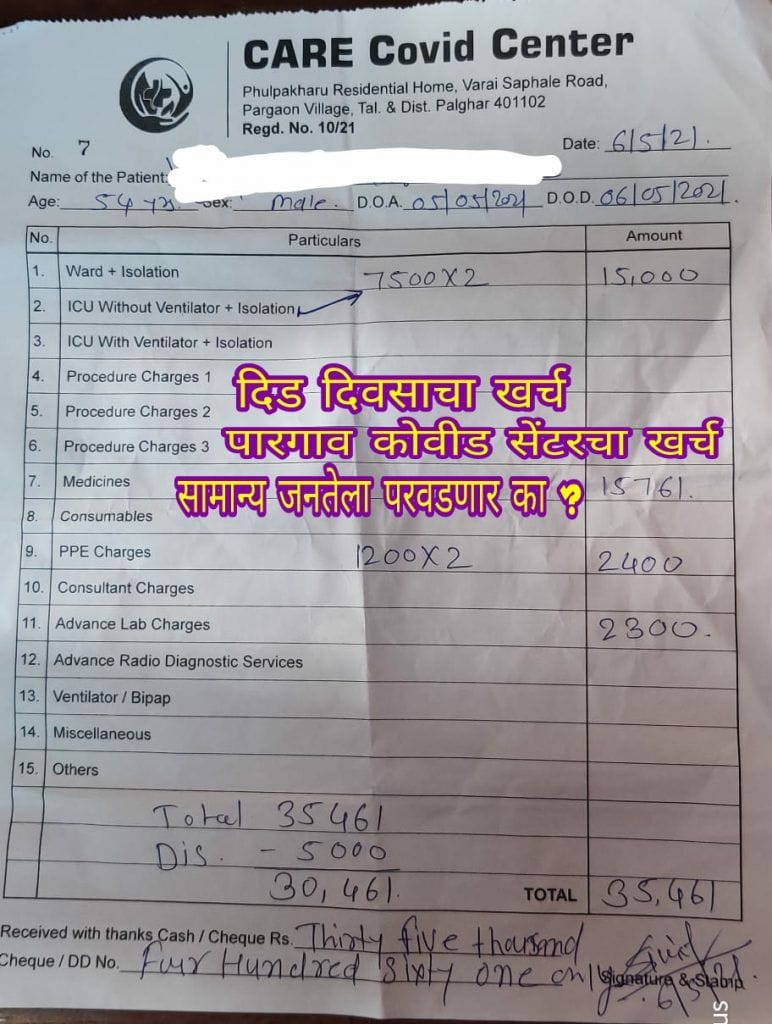 CARE Covid Center
Phulpakharu Residential Home, Varai Saphale Road,
Pargaon Village, Tal. & Dist. Palghar 401102
Regd. No. 10/21
No. 7
Date: 6/5/21.
Name of the Patient:
Age: 54 yrs. Sex: male. D.O.A. 05/05/2021 D.O.D. 06/05/2021.
No. Particulars Amount
1. Ward + Isolation 7500X2 15,000
2. ICU Without Ventilator + Isolation
3. ICU With Ventilator + Isolation
4. Procedure Charges 1
दिड दिवसाचा खर्च
5. Procedure Charges 2
6. Procedure Charges 3
पारगाव कोवीड सेंटरचा खर्च
7. Medicines 15761.
सामान्य जनतेला परवडणार का ?
8. Consumables
9. PPE Charges 1200X2 2400
10. Consultant Charges
11. Advance Lab Charges 2300.
12. Advance Radio Diagnostic Services
13. Ventilator / Bipap
14. Miscellaneous
15. Others
Total 35461
Dis. - 5000
30,461.
TOTAL 35,461
Received with thanks Cash / Cheque Rs. Thirty five thousand
Cheque / DD No. Four Hundred Sixty one only
Signature & Stamp
6/5/21.